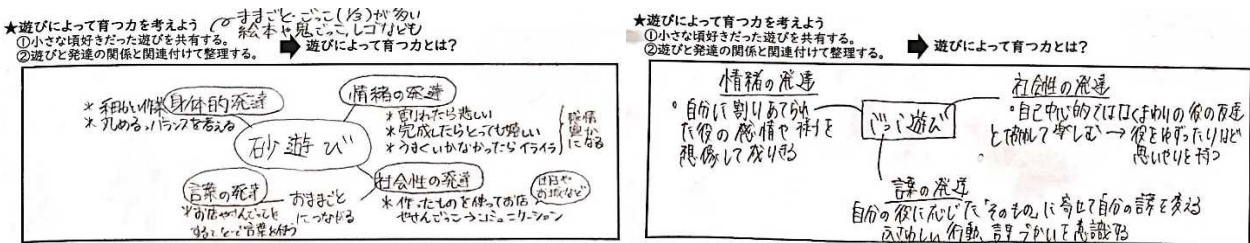 ままごと・ごっこ(1/3)が多い
絵本や鬼ごっこ、レゴなども
★遊びによって育つ力を考えよう
①小さな頃好きだった遊びを共有する。
②遊びと発達の関係と関連付けて整理する。
➡ 遊びによって育つ力とは?
身体的発達
*細かい作業
*丸める。バランスを考える
情緒の発達
*割れたら悲しい
*完成したらとっても嬉しい
*うまくいかなかったらイライラ
感情
豊か
になる
砂遊び
言葉の発達
*お店やさんごっこを
することで言葉を使う
おままごと
につながる
社会性の発達
*作ったものを使ってお店
やさんごっこ→コミュニケーション
★遊びによって育つ力を考えよう
①小さな頃好きだった遊びを共有する。
②遊びと発達の関係と関連付けて整理する。
➡ 遊びによって育つ力とは?
情緒の発達
・自分に割りあてられ
た役の感情や
想像して成りきる
ごっこ遊び
社会性の発達
・自己中心的ではなくまわりの役の友達
と協力して楽しむ→役をゆずったりなど
思いやりを持つ
言葉の発達
自分の役に応じた「そのもの」に寄せて自分の語を変える
ふさわしい行動、言葉づかいを意識する